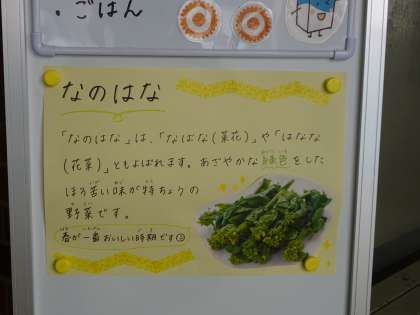 ・ごはん
なのはな
「なのはな」は、「なばな(菜花)」や「はなな
(花菜)」ともよばれます。あざやかな緑色をした
ほろ苦い味が特ちょうの
野菜です。
春が一番おいしい時期です☺